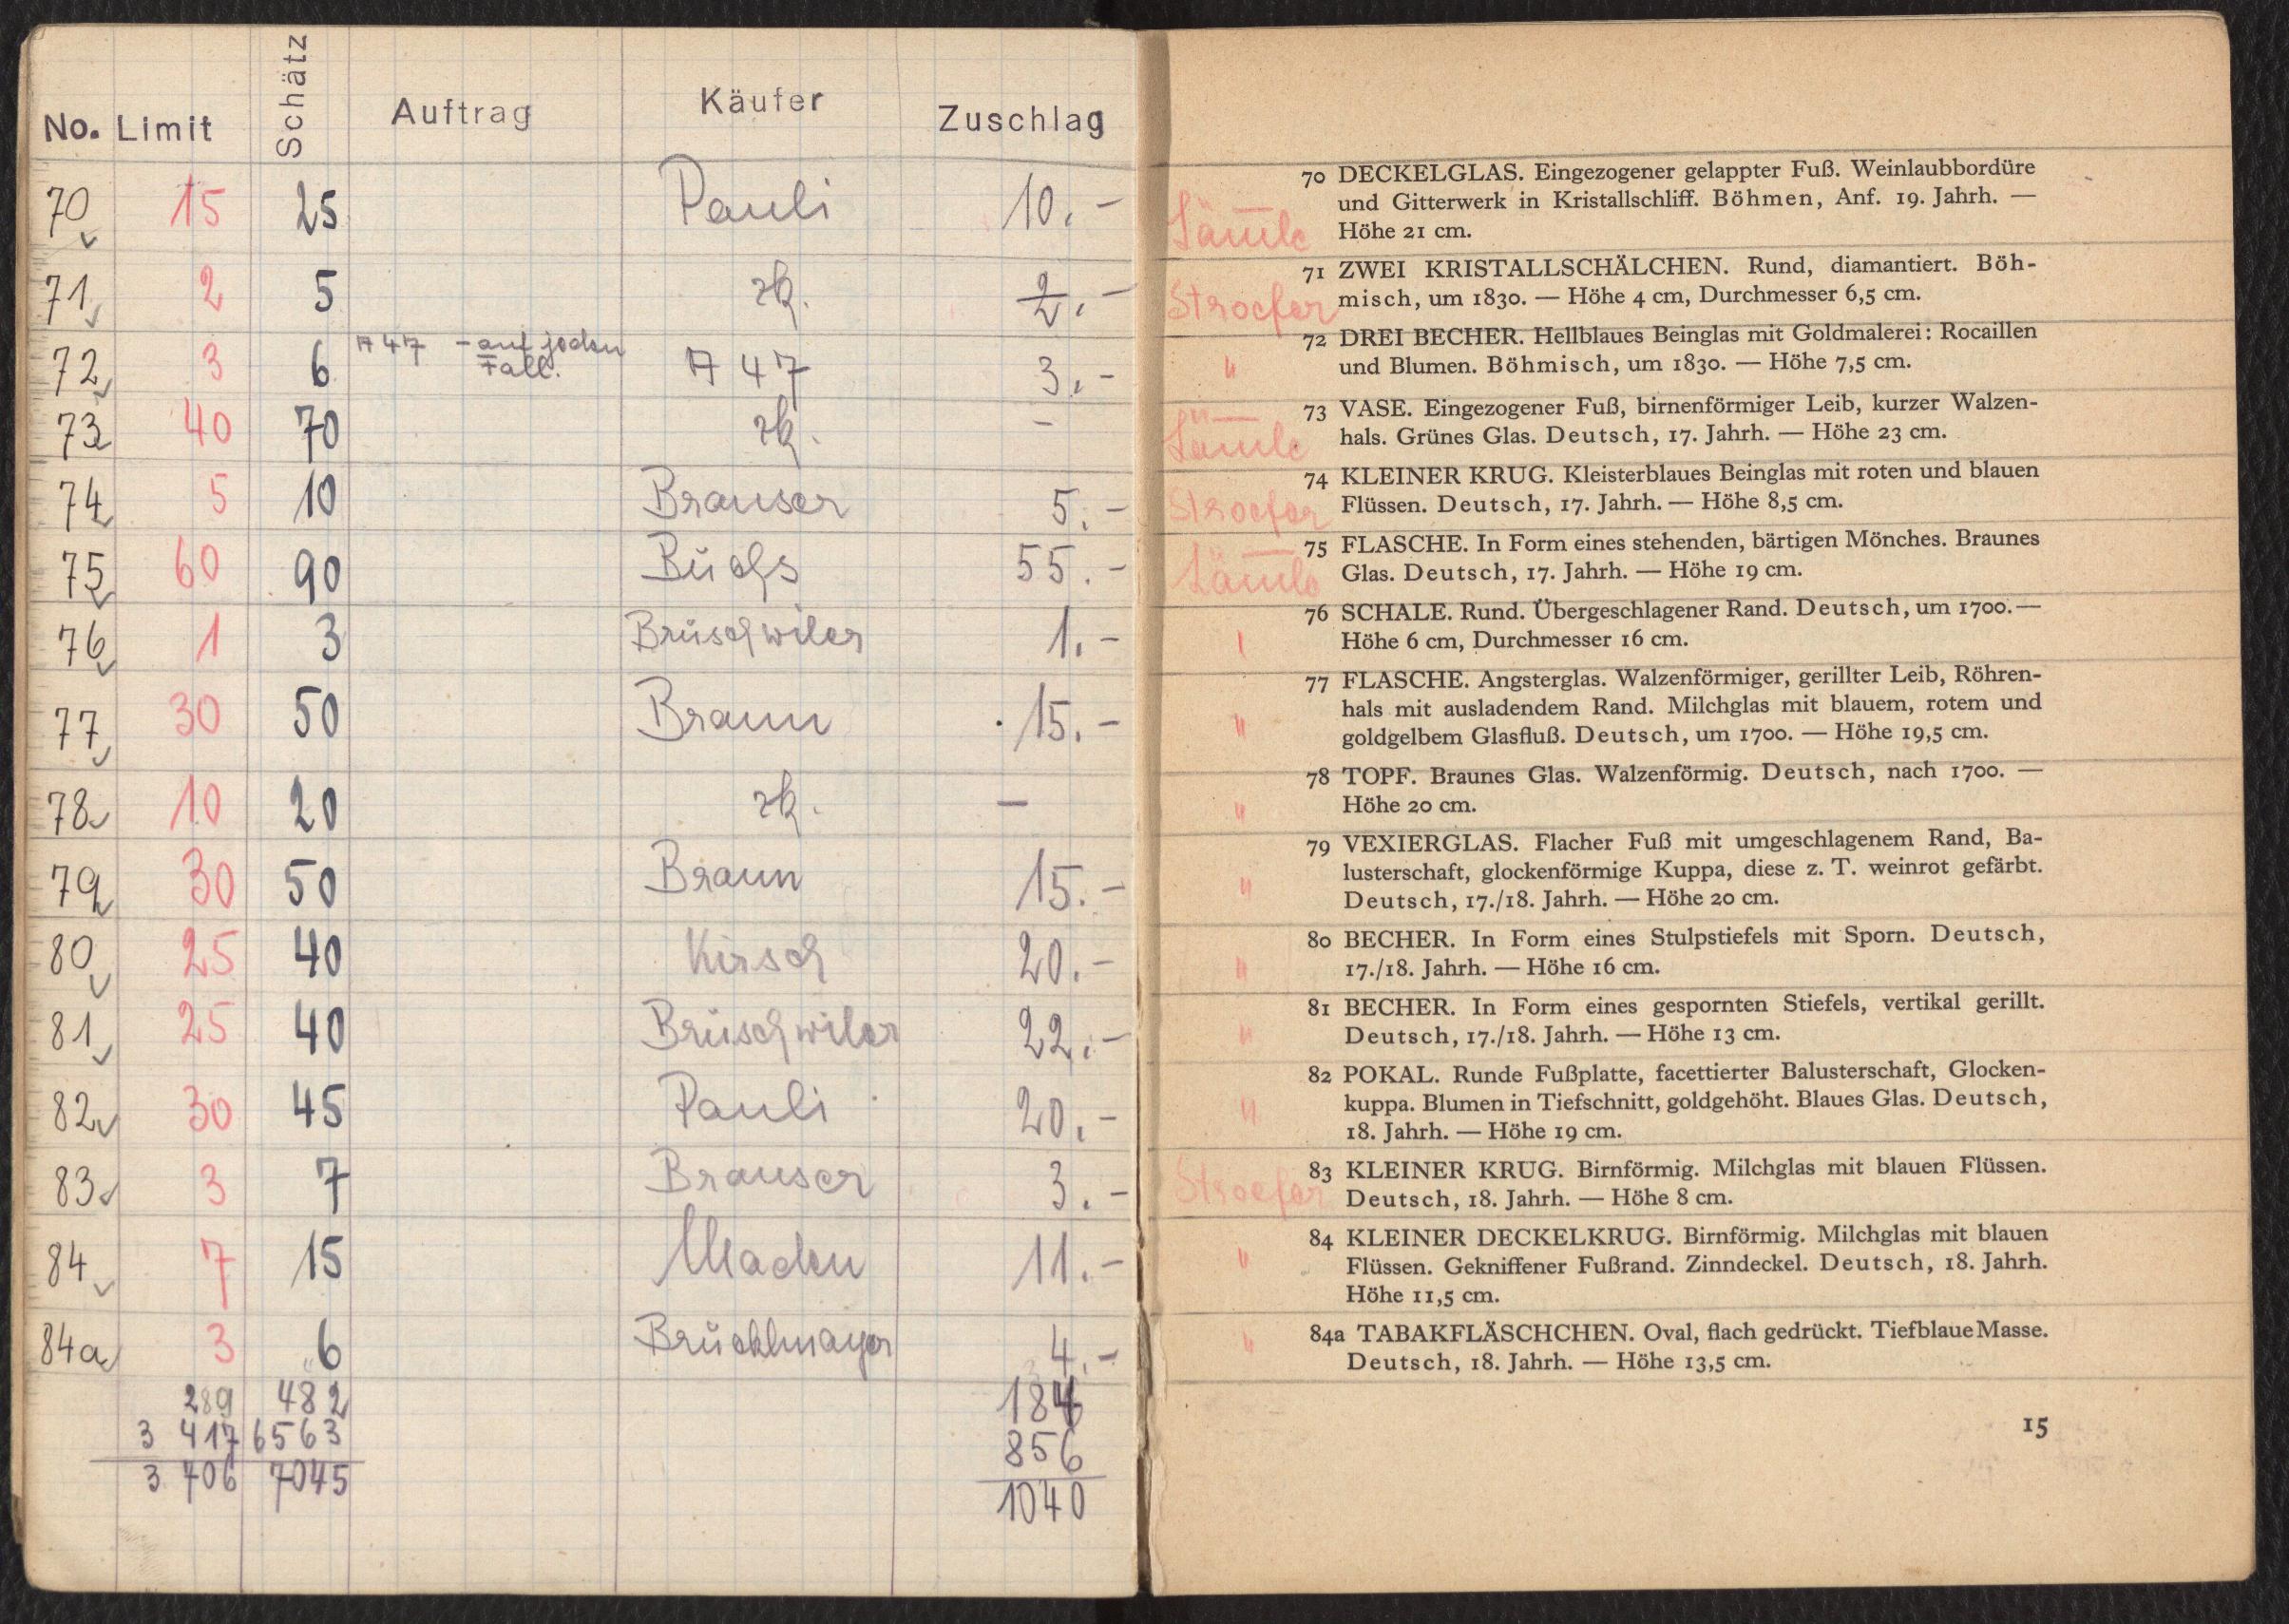 No. Limit Schätz Auftrag Käufer Zuschlag
70 15 25 Pauli 10.-
71 2 5 zk. 2.-
72 3 6 A 47 - auf jeden Fall. A 47 3.-
73 40 70 zk. -
74 5 10 Brauser 5.-
75 60 90 Büchs 55.-
76 1 3 Brüschwiler 1.-
77 30 50 Braun 15.-
78 10 20 zk. -
79 30 50 Braun 15.-
80 25 40 Kirsch 20.-
81 25 40 Brüschwiler 22.-
82 30 45 Pauli 20.-
83 3 7 Brauser 3.-
84 7 15 Maden 11.-
84a 3 6 Brücklmayer 4.-
289 482 184
3 417 6563 856
3 706 7045 1040
70 DECKELGLAS. Eingezogener gelappter Fuß. Weinlaubbordüre
und Gitterwerk in Kristallschliff. Böhmen, Anf. 19. Jahrh. —
Sämle Höhe 21 cm.
71 ZWEI KRISTALLSCHÄLCHEN. Rund, diamantiert. Böh-
Stroefer misch, um 1830. — Höhe 4 cm, Durchmesser 6,5 cm.
72 DREI BECHER. Hellblaues Beinglas mit Goldmalerei: Rocaillen
" und Blumen. Böhmisch, um 1830. — Höhe 7,5 cm.
73 VASE. Eingezogener Fuß, birnenförmiger Leib, kurzer Walzen-
Sämle hals. Grünes Glas. Deutsch, 17. Jahrh. — Höhe 23 cm.
74 KLEINER KRUG. Kleisterblaues Beinglas mit roten und blauen
Stroefer Flüssen. Deutsch, 17. Jahrh. — Höhe 8,5 cm.
75 FLASCHE. In Form eines stehenden, bärtigen Mönches. Braunes
Sämle Glas. Deutsch, 17. Jahrh. — Höhe 19 cm.
76 SCHALE. Rund. Übergeschlagener Rand. Deutsch, um 1700.—
Höhe 6 cm, Durchmesser 16 cm.
77 FLASCHE. Angsterglas. Walzenförmiger, gerillter Leib, Röhren-
" hals mit ausladendem Rand. Milchglas mit blauem, rotem und
goldgelbem Glasfluß. Deutsch, um 1700. — Höhe 19,5 cm.
78 TOPF. Braunes Glas. Walzenförmig. Deutsch, nach 1700. —
" Höhe 20 cm.
79 VEXIERGLAS. Flacher Fuß mit umgeschlagenem Rand, Ba-
" lusterschaft, glockenförmige Kuppa, diese z. T. weinrot gefärbt.
Deutsch, 17./18. Jahrh. — Höhe 20 cm.
80 BECHER. In Form eines Stulpstiefels mit Sporn. Deutsch,
" 17./18. Jahrh. — Höhe 16 cm.
81 BECHER. In Form eines gespornten Stiefels, vertikal gerillt.
" Deutsch, 17./18. Jahrh. — Höhe 13 cm.
82 POKAL. Runde Fußplatte, facettierter Balusterschaft, Glocken-
" kuppa. Blumen in Tiefschnitt, goldgehöht. Blaues Glas. Deutsch,
18. Jahrh. — Höhe 19 cm.
83 KLEINER KRUG. Birnförmig. Milchglas mit blauen Flüssen.
Stroefer Deutsch, 18. Jahrh. — Höhe 8 cm.
84 KLEINER DECKELKRUG. Birnförmig. Milchglas mit blauen
" Flüssen. Gekniffener Fußrand. Zinndeckel. Deutsch, 18. Jahrh.
Höhe 11,5 cm.
" 84a TABAKFLÄSCHCHEN. Oval, flach gedrückt. Tiefblaue Masse.
Deutsch, 18. Jahrh. — Höhe 13,5 cm.
15